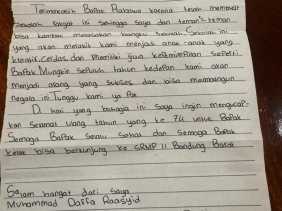 Terimakasih Bapak
sekolah sangat ini sehingga saya dan teman-teman
bisa kembali merasakan bangku sekolah. Sekolah ini
yang akan menjadi kami menjadi anak-anak yang
cerdas dan memiliki jiwa kepemimpinan seperti
Bapak. Mungkin sepuluh tahun kedepan kami akan
menjadi orang yang sukses dan bisa membangun
negara ini tunggu kami ya Pak
Di hari yang bahagia ini saya ingin mengucap-
kan selamat ulang tahun yang ke 74 untuk Bapak
Semoga Bapak selalu sehat dan semoga Bapak
kelak bisa berkunjung ke SRMP 11 Bandung Barat
Salam hangat dari saya
Muhammad Daffa Raasyid